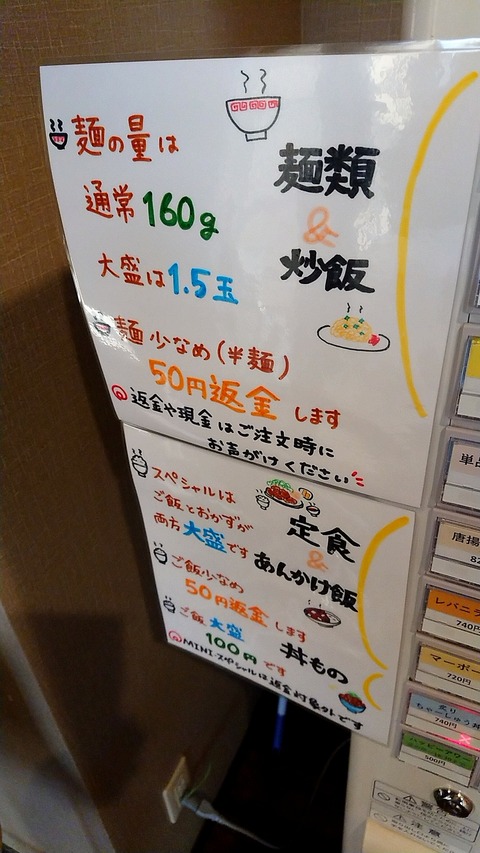 麺の量は
通常160g
大盛は1.5玉
麺少なめ(半麺)
50円返金 します
返金や現金はご注文時に
お声がけください
麺類
&
炒飯
スペシャルは
ご飯とおかずが
両方大盛です
ご飯少なめ
50円返金します
ご飯大盛
100円です
MINI・スペシャルは返金対象外です
定食
&
あんかけ飯
丼もの
単品
唐揚
レバニラ
740円
マーボー
720円
炙り
ちゃーしゅう丼
740円
ハッピーアワー
500円
警告
注意